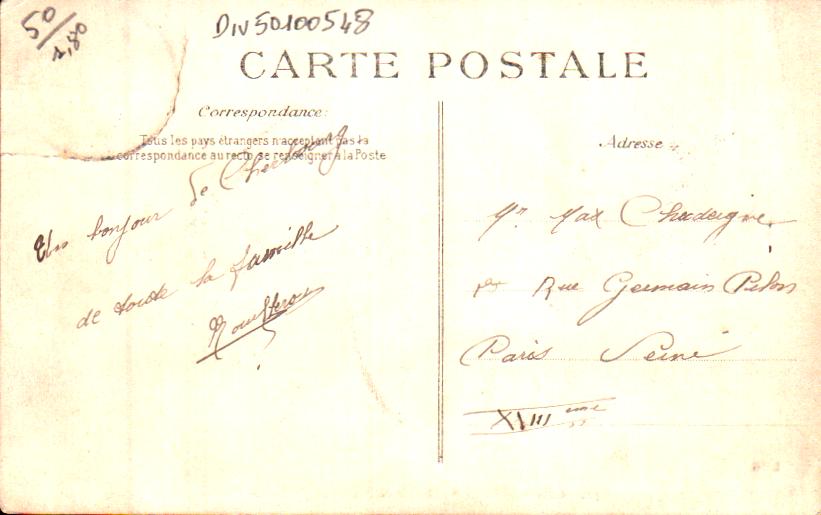 50/1,80
DIV50100548
CARTE POSTALE
Correspondance:
Tous les pays étrangers n'acceptant pas la
correspondance au recto, se renseigner à la Poste
Un bonjour de Cherbourg
de toute la famille
Adresse
Mr Max Chadaigne
Rue Germain Pilon
Paris Seine
XVIII ème